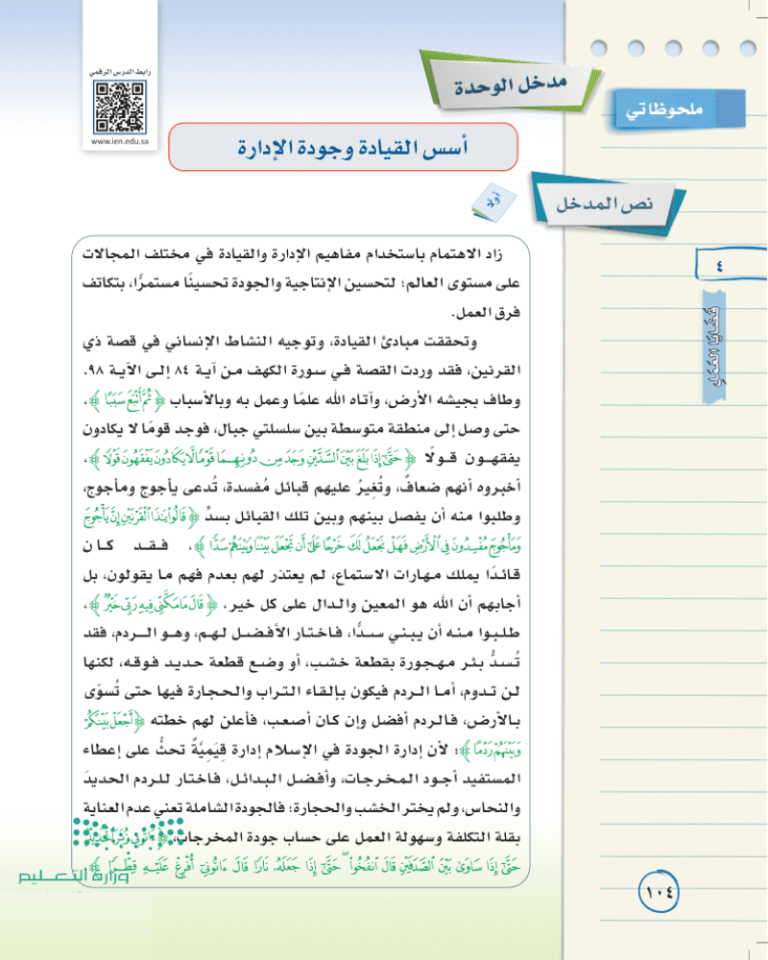 رابط الدرس الرقمي
www.ien.edu.sa
مدخل الوحدة
ملحوظاتي
أسس القيادة وجودة الإدارة
أولًا
نص المدخل
زاد الاهتمام باستخدام مفاهيم الإدارة والقيادة في مختلف المجالات
على مستوى العالم؛ لتحسين الإنتاجية والجودة تحسينًا مستمرًّا، بتكاتف
فرق العمل.
وتحققت مبادئ القيادة، وتوجيه النشاط الإنساني في قصة ذي
القرنين، فقد وردت القصة في سورة الكهف من آية ٨٤ إلى الآية ٩٨.
وطاف بجيشه الأرض، وآتاه الله علمًا وعمل به وبالأسباب ﴿ ثُمَّ أَتْبَعَ سَبَبًا ﴾،
حتى وصل إلى منطقة متوسطة بين سلسلتي جبال، فوجد قومًا لا يكادون
يفقهون قولًا ﴿ حَتَّىٰٓ إِذَا بَلَغَ بَيْنَ ٱلسَّدَّيْنِ وَجَدَ مِن دُونِهِمَا قَوْمًا لَّا يَكَادُونَ يَفْقَهُونَ قَوْلًا ﴾،
أخبروه أنهم ضعافٌ، وتُغِيرُ عليهم قبائل مُفسدة، تُدعى يأجوج ومأجوج،
وطلبوا منه أن يفصل بينهم وبين تلك القبائل بسدٍّ ﴿ قَالُوا۟ يَـٰذَا ٱلْقَرْنَيْنِ إِنَّ يَأْجُوجَ
وَمَأْجُوجَ مُفْسِدُونَ فِى ٱلْأَرْضِ فَهَلْ نَجْعَلُ لَكَ خَرْجًا عَلَىٰٓ أَن تَجْعَلَ بَيْنَنَا وَبَيْنَهُمْ سَدًّا ﴾، فـقـد كـان
قائدًا يملك مهارات الاستماع، لم يعتذر لهم بعدم فهم ما يقولون، بل
أجابهم أن الله هو المعين والدال على كل خير، ﴿ قَالَ مَا مَكَّنِّى فِيهِ رَبِّى خَيْرٌ ﴾،
طلبوا منه أن يبني سدًّا، فاختار الأفضل لهم، وهو الردم، فقد
تُسدُّ بئر مهجورة بقطعة خشب، أو وضع قطعة حديد فوقه، لكنها
لن تدوم، أما الردم فيكون بإلقاء التراب والحجارة فيها حتى تُسوّى
بالأرض، فالردم أفضل وإن كان أصعب، فأعلن لهم خطته ﴿ أَجْعَلْ بَيْنَكُمْ
وَبَيْنَهُمْ رَدْمًا ﴾؛ لأن إدارة الجودة في الإسلام إدارة قِيَمِيَّةٌ تحثُّ على إعطاء
المستفيد أجود المخرجات، وأفضل البدائل، فاختار للردم الحديدَ
والنحاس، ولم يختر الخشب والحجارة؛ فالجودة الشاملة تعني عدم العناية
بقلة التكلفة وسهولة العمل على حساب جودة المخرجات، ﴿ ءَاتُونِى زُبَرَ ٱلْحَدِيدِ
حَتَّىٰٓ إِذَا سَاوَىٰ بَيْنَ ٱلصَّدَفَيْنِ قَالَ ٱنفُخُوا۟ ۖ حَتَّىٰٓ إِذَا جَعَلَهُۥ نَارًا قَالَ ءَاتُونِىٓ أُفْرِغْ عَلَيْهِ قِطْرًا ﴾.
وزارة التعليم
٤
قضايا العمل
١٠٤